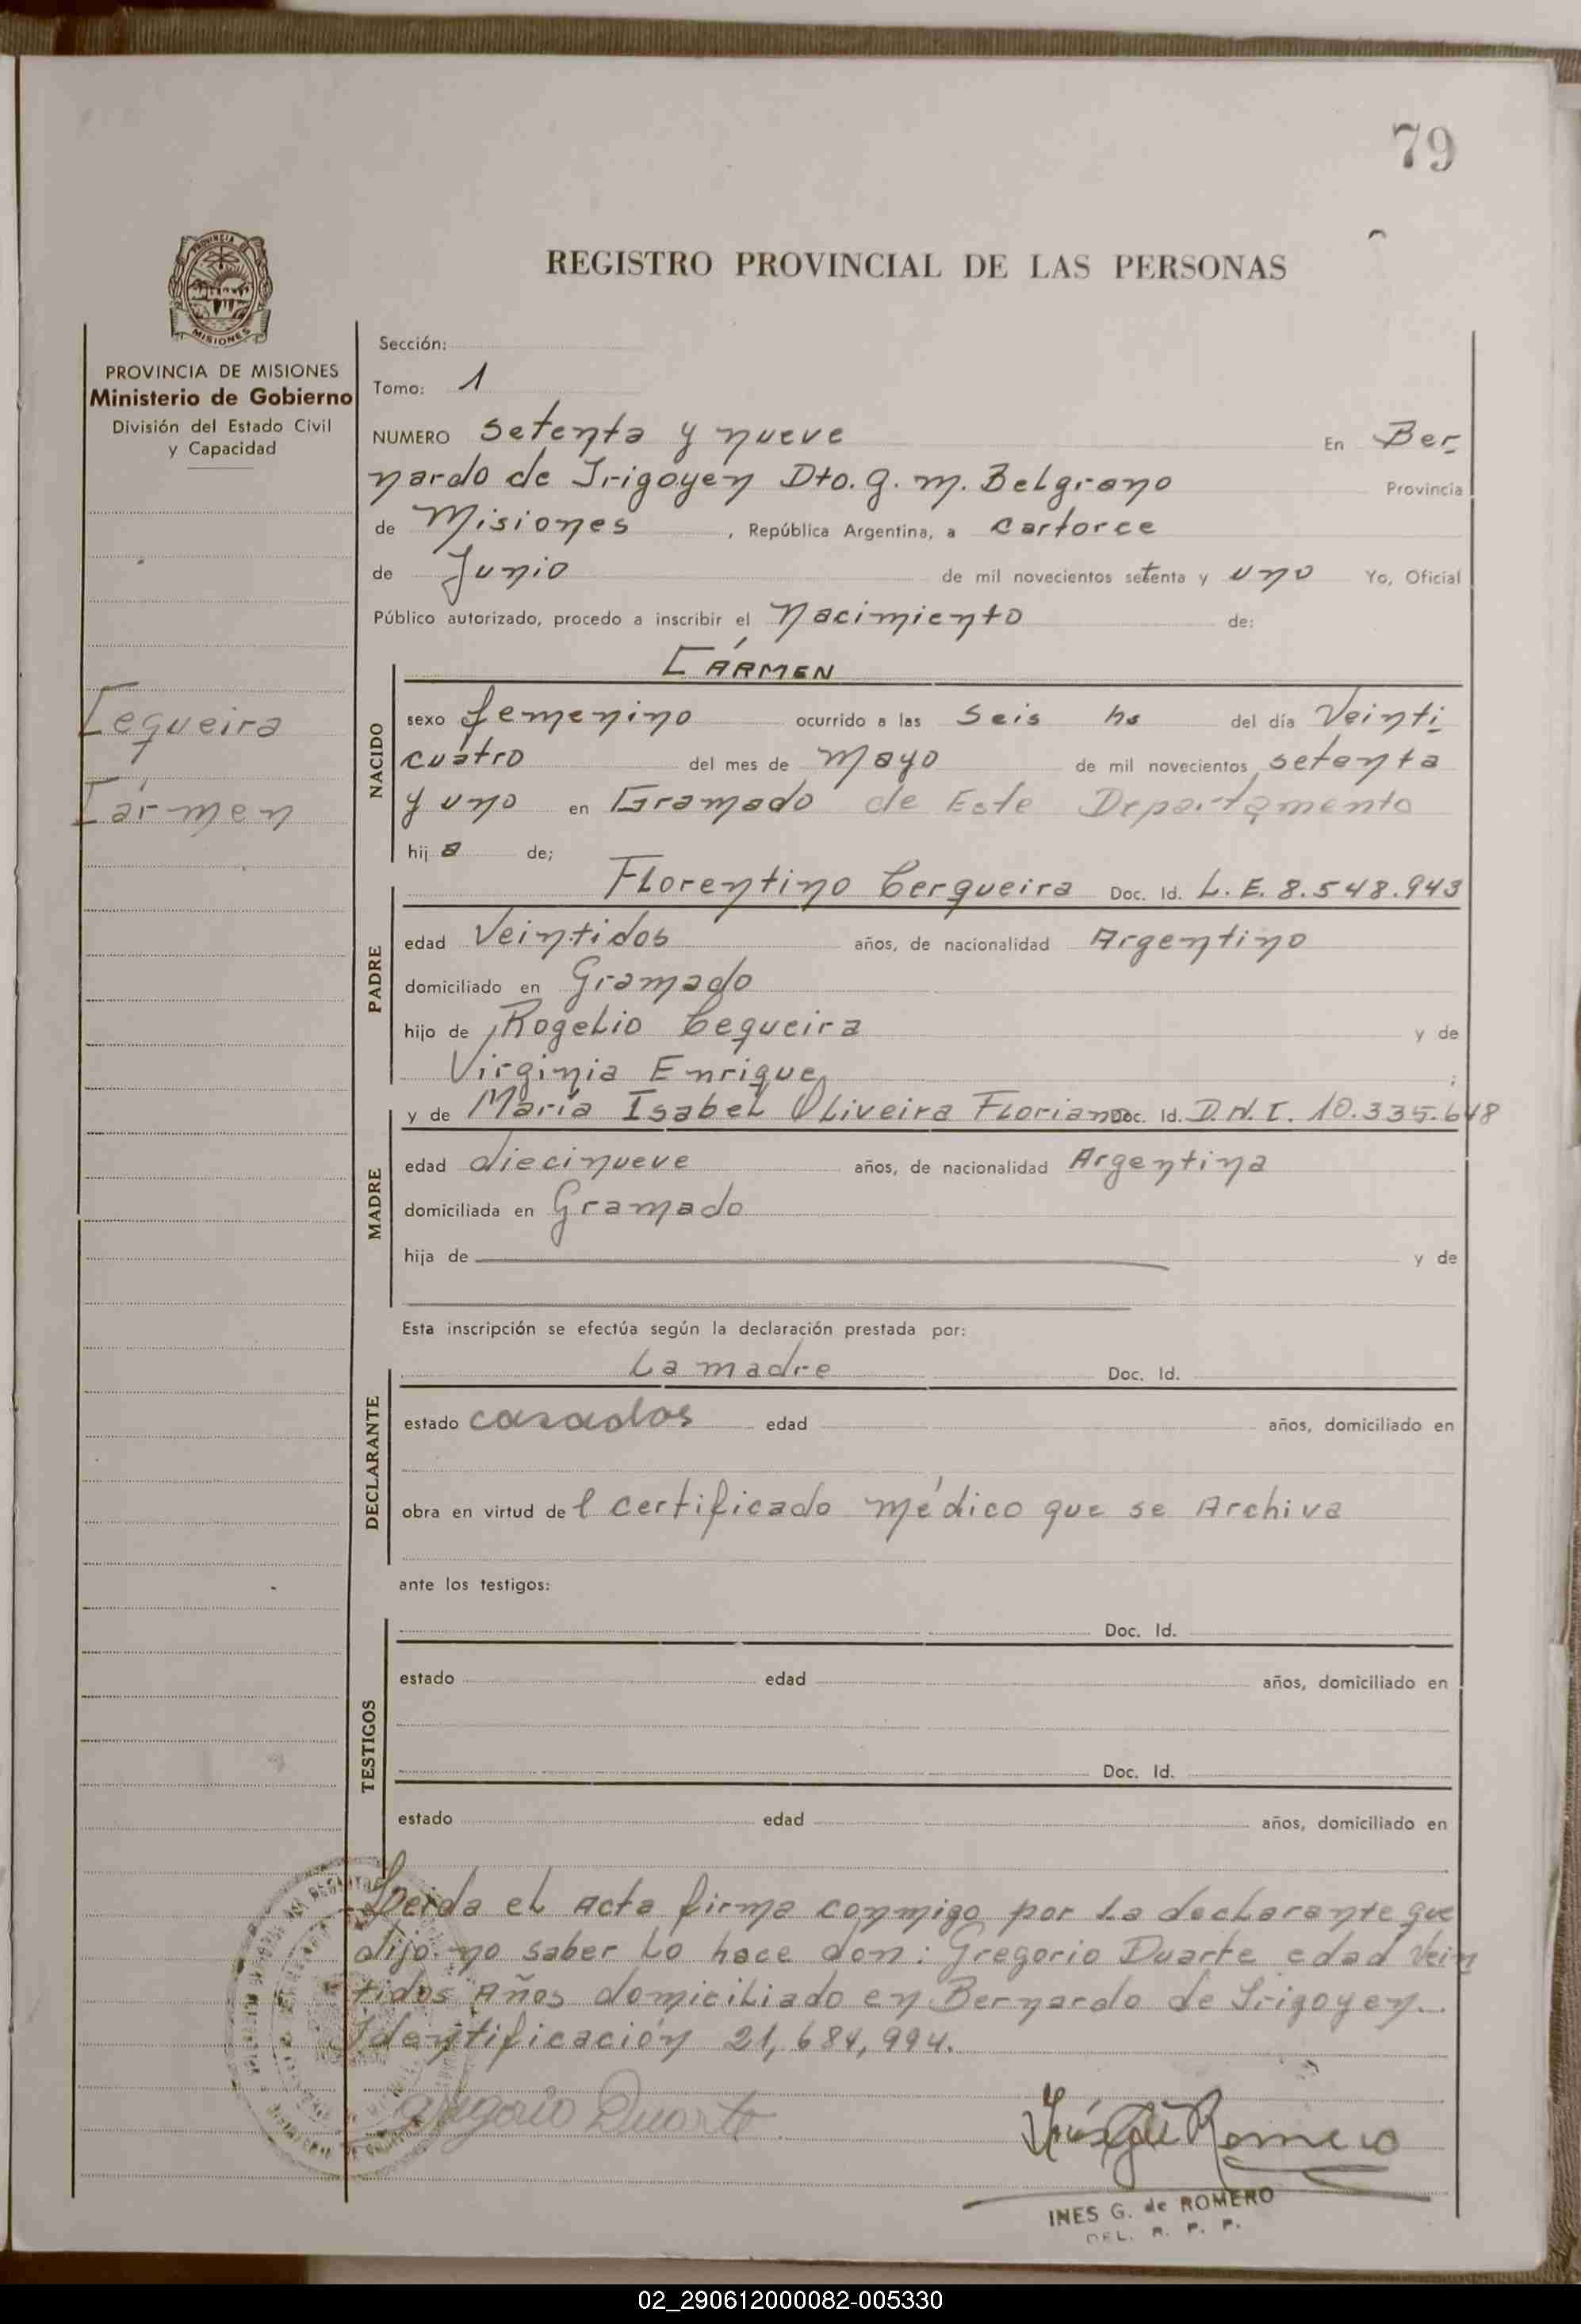 79
REGISTRO PROVINCIAL DE LAS PERSONAS
PROVINCIA DE
MISIONES
PROVINCIA DE MISIONES
Ministerio de Gobierno
División del Estado Civil
y Capacidad
Cequeira
Cármen
Sección:
Tomo: 1
NUMERO setenta y nueve En Ber-
nardo de Irigoyen Dto. G. M. Belgrano Provincia
de Misiones, República Argentina, a Cartorce
de Junio de mil novecientos setenta y uno Yo, Oficial
Público autorizado, procedo a inscribir el Nacimiento de:
CÁRMEN
NACIDO
sexo femenino ocurrido a las Seis hs del día Veinti
cuatro del mes de mayo de mil novecientos setenta
y uno en Gramado de Este Departamento
hija de;
Florentino Cerqueira Doc. Id. L. E. 8.548.943
PADRE
edad Veintidos años, de nacionalidad Argentino
domiciliado en Gramado
hijo de Rogelio Cequeira y de
Virginia Enrique;
y de María Isabel Oliveira Floriano Doc. Id. D.N.I. 10.335.648
MADRE
edad diecinueve años, de nacionalidad Argentina
domiciliada en Gramado
hija de y de
Esta inscripción se efectúa según la declaración prestada por:
La madre Doc. Id.
DECLARANTE
estado casados edad años, domiciliado en
obra en virtud del certificado médico que se Archiva
ante los testigos:
Doc. Id.
TESTIGOS
estado edad años, domiciliado en
Doc. Id.
estado edad años, domiciliado en
Leida el Acta firma conmigo por la declarante que
dijo no saber lo hace don: Gregorio Duarte edad Vein
tidos Años domiciliado en Bernardo de Irigoyen.
Identificación 21,684,994.
Gregorio Duarte
Inés G de Romero
INES G. de ROMERO
DEL. R. P. P.
02_290612000082-005330